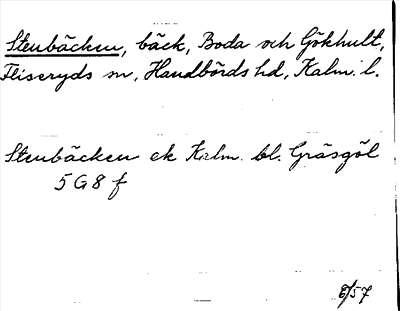 Stenbäcken, bäck, Boda och Gökhult,
Fliseryds sn, Handbörds hd, Kalm. l.
Stenbäcken ek Kalm. bl. Gräsgöl
5 G 8 f
6/57